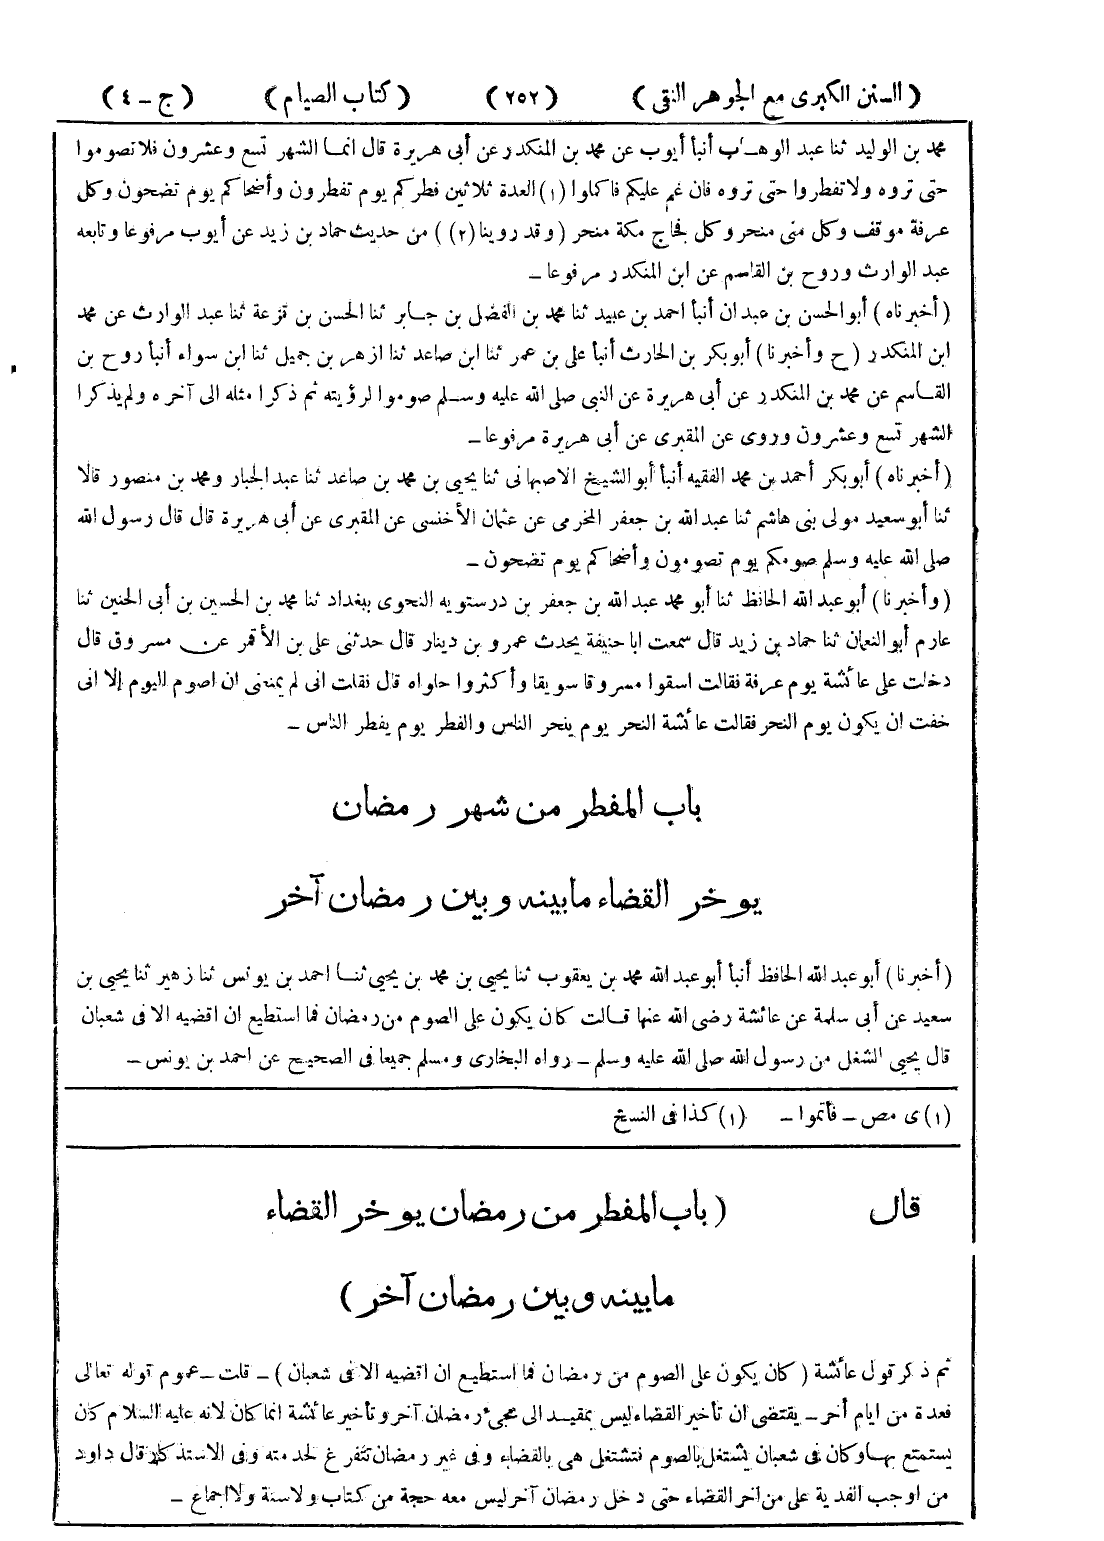 ( السنن الكبرى مع الجوهر النقى ) ( ٢٥٢ ) ( كتاب الصيام ) ( ج - ٤ )
محمد بن الوليد ثنا عبد الوهاب أنبأ أيوب عن محمد بن المنكدر عن أبى هريرة قال انما الشهر تسع وعشرون فلا تصوموا
حتى تروه ولا تفطروا حتى تروه فان غم عليكم فاكملوا (١) العدة ثلاثين فطركم يوم تفطرون وأضحاكم يوم تضحون وكل
عرفة موقف وكل منى منحر وكل فجاج مكة منحر ( وقد روينا (٢) ) من حديث حماد بن زيد عن أيوب مرفوعا وتابعه
عبد الوارث وروح بن القاسم عن ابن المنكدر مرفوعا -
( أخبرناه ) أبو الحسن بن عبدان أنبأ احمد بن عبيد ثنا محمد بن الفضل بن جابر ثنا الحسن بن قزعة ثنا عبد الوارث عن محمد
ابن المنكدر ( ح وأخبرنا ) أبو بكر بن الحارث أنبأ على بن عمر ثنا ابن صاعد ثنا ازهر بن جميل ثنا ابن سواء أنبأ روح بن
القاسم عن محمد بن المنكدر عن أبى هريرة عن النبى صلى الله عليه وسلم صوموا لرؤيته ثم ذكرا مثله الى آخره ولم يذكرا
الشهر تسع وعشرون وروى عن المقبرى عن أبى هريرة مرفوعا -
( أخبرناه ) أبو بكر أحمد بن محمد الفقيه أنبأ أبو الشيخ الاصبهانى ثنا يحيى بن محمد بن صاعد ثنا عبد الجبار ومحمد بن منصور قالا
ثنا أبو سعيد مولى بنى هاشم ثنا عبد الله بن جعفر المخرمى عن عثمان الأخنسى عن المقبرى عن أبى هريرة قال قال رسول الله
صلى الله عليه وسلم صومكم يوم تصومون وأضحاكم يوم تضحون -
( وأخبرنا ) أبو عبد الله الحافظ ثنا أبو محمد عبد الله بن جعفر بن درستويه النحوى ببغداد ثنا محمد بن الحسين بن أبى الحنين ثنا
عارم أبو النعمان ثنا حماد بن زيد قال سمعت ابا حنيفة يحدث عمرو بن دينار قال حدثنى على بن الأقمر عن مسروق قال
دخلت على عائشة يوم عرفة فقالت اسقوا مسروقا سويقا وأكثروا حلواه قال فقلت انى لم يمنعنى ان اصوم اليوم إلا انى
خفت ان يكون يوم النحر فقالت عائشة النحر يوم ينحر الناس والفطر يوم يفطر الناس -
باب المفطر من شهر رمضان
يوخر القضاء مابينه وبين رمضان آخر
( أخبرنا ) أبو عبد الله الحافظ أنبأ أبو عبد الله محمد بن يعقوب ثنا يحيى بن محمد بن يحيى ثنا احمد بن يونس ثنا زهير ثنا يحيى بن
سعيد عن أبى سلمة عن عائشة رضى الله عنها قالت كان يكون على الصوم من رمضان فما استطيع ان اقضيه الا فى شعبان
قال يحيى الشغل من رسول الله صلى الله عليه وسلم - رواه البخارى ومسلم جميعا فى الصحيح عن احمد بن يونس -
(١) ى مص - فأتموا - (١) كذا فى النسخ
قال ( باب المفطر من رمضان يوخر القضاء
مابينه وبين رمضان آخر )
ثم ذكر قول عائشة ( كان يكون على الصوم من رمضان فما استطيع ان اقضيه الا فى شعبان ) - قلت - عموم قوله تعالى
فعدة من ايام أخر - يقتضى ان تأخير القضاء ليس بمقيد الى مجىء رمضان آخر وتأخير عائشة انما كان لانه عليه السلام كان
يستمتع بها وكان فى شعبان يشتغل بالصوم فتشتغل هى بالقضاء وفى غير رمضان تتفرغ لخدمته وفى الاستذكار قال داود
من اوجب الفدية على من اخر القضاء حتى دخل رمضان آخر ليس معه حجة من كتاب ولا سنة ولا اجماع -